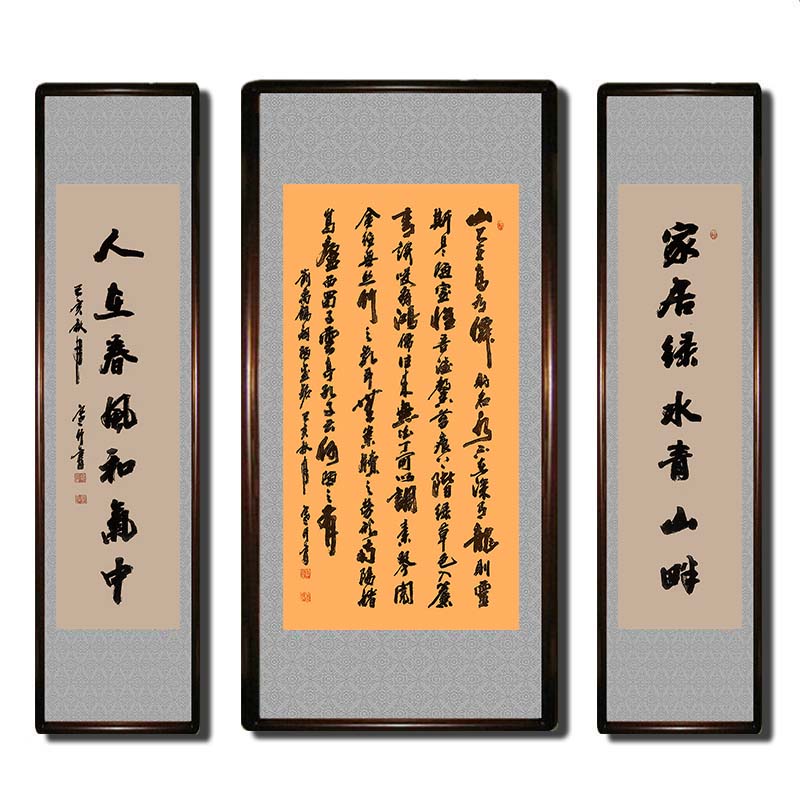 家居绿水青山畔
山不在高有僊則名水不在深有龍則靈
斯是陋室惟吾德馨苔痕上階緑草色入簾
青談笑有鴻儒往来無白丁可以調素琴閲
金經無丝竹之乱耳無案牘之劳形南陽諸
葛廬西蜀子雲亭孔子云何陋之有
劉禹錫詞陋室銘己亥秋月
人在春風和氣中
己亥秋月